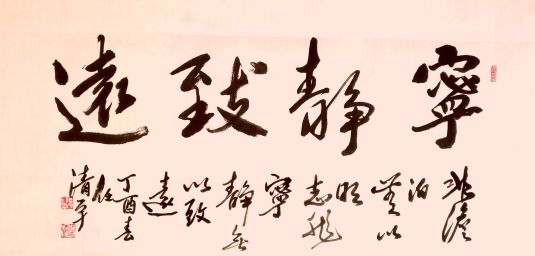 寧静致遠
非澹
泊
無以
明
志非
寧
静無
以致
遠
丁酉春
任
清平